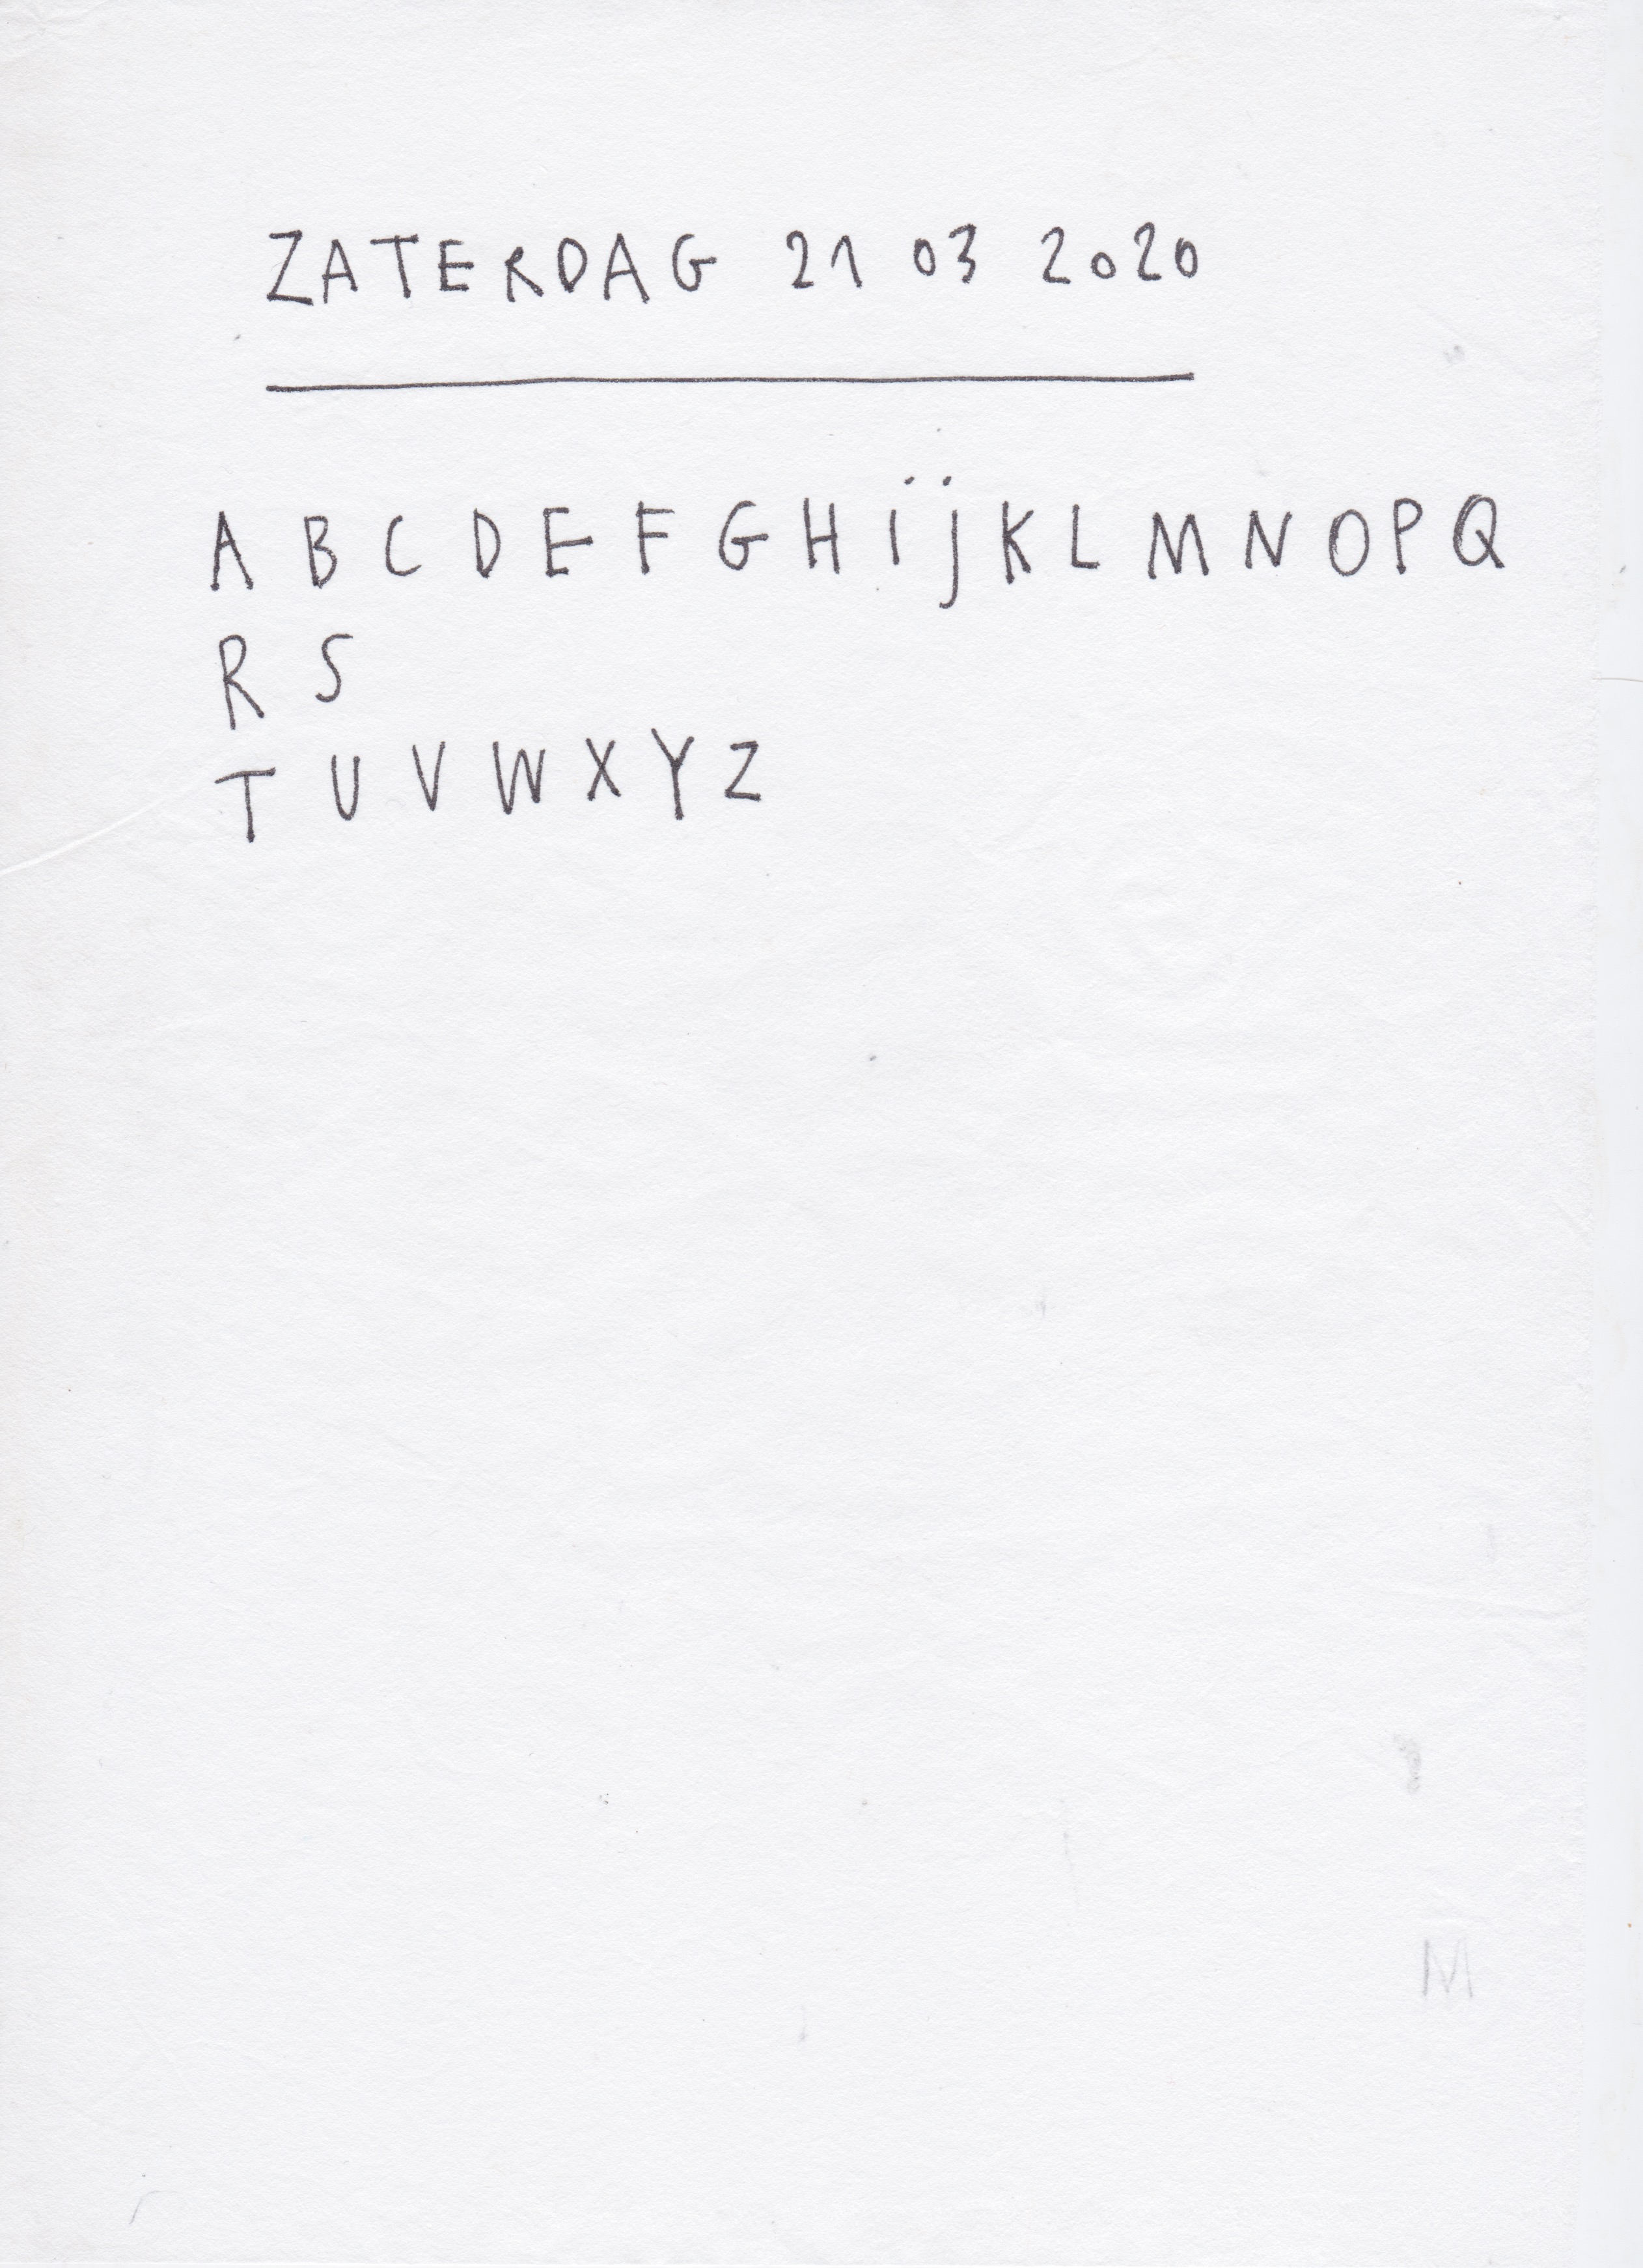 ZATERDAG 21 03 2020
A B C D E F G H i j K L M N O P Q
R S
T U V W X Y Z